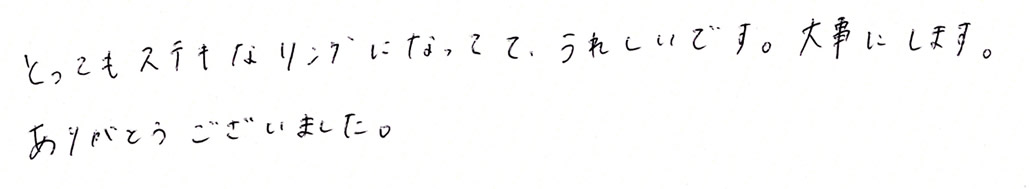 とってもステキなリングになってて、うれしいです。大事にします。
ありがとうございました。